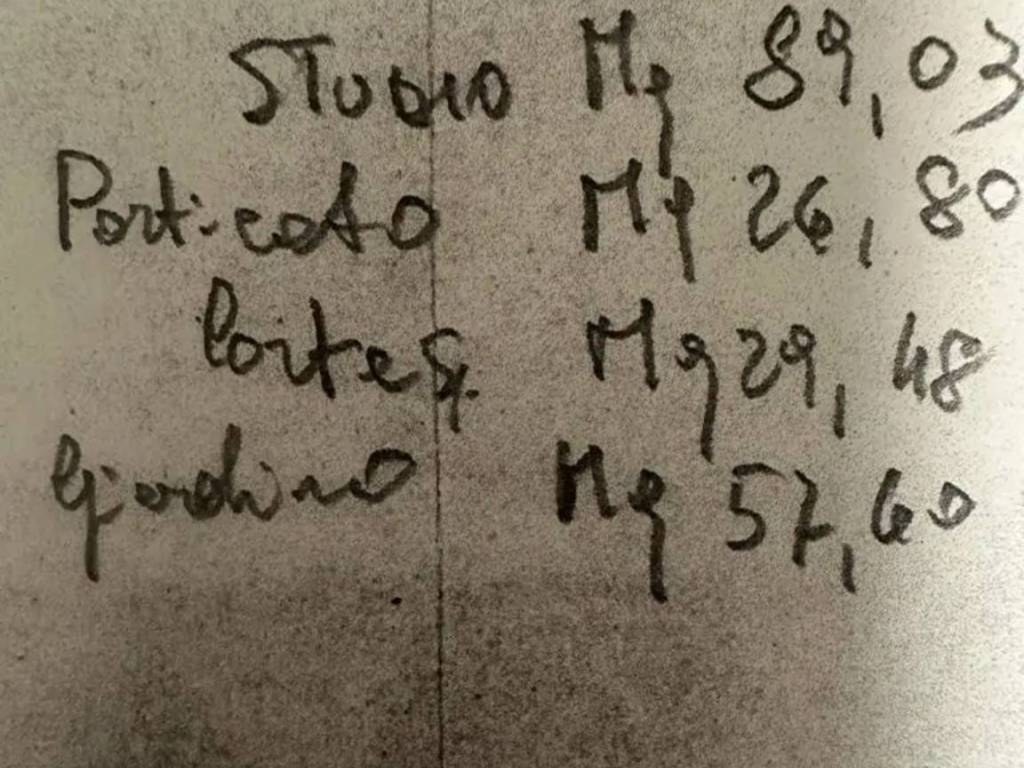 STUDIO Mq 89,03
Porticato Mq 26,80
Corte Mq 29,48
Giardino Mq 57,60